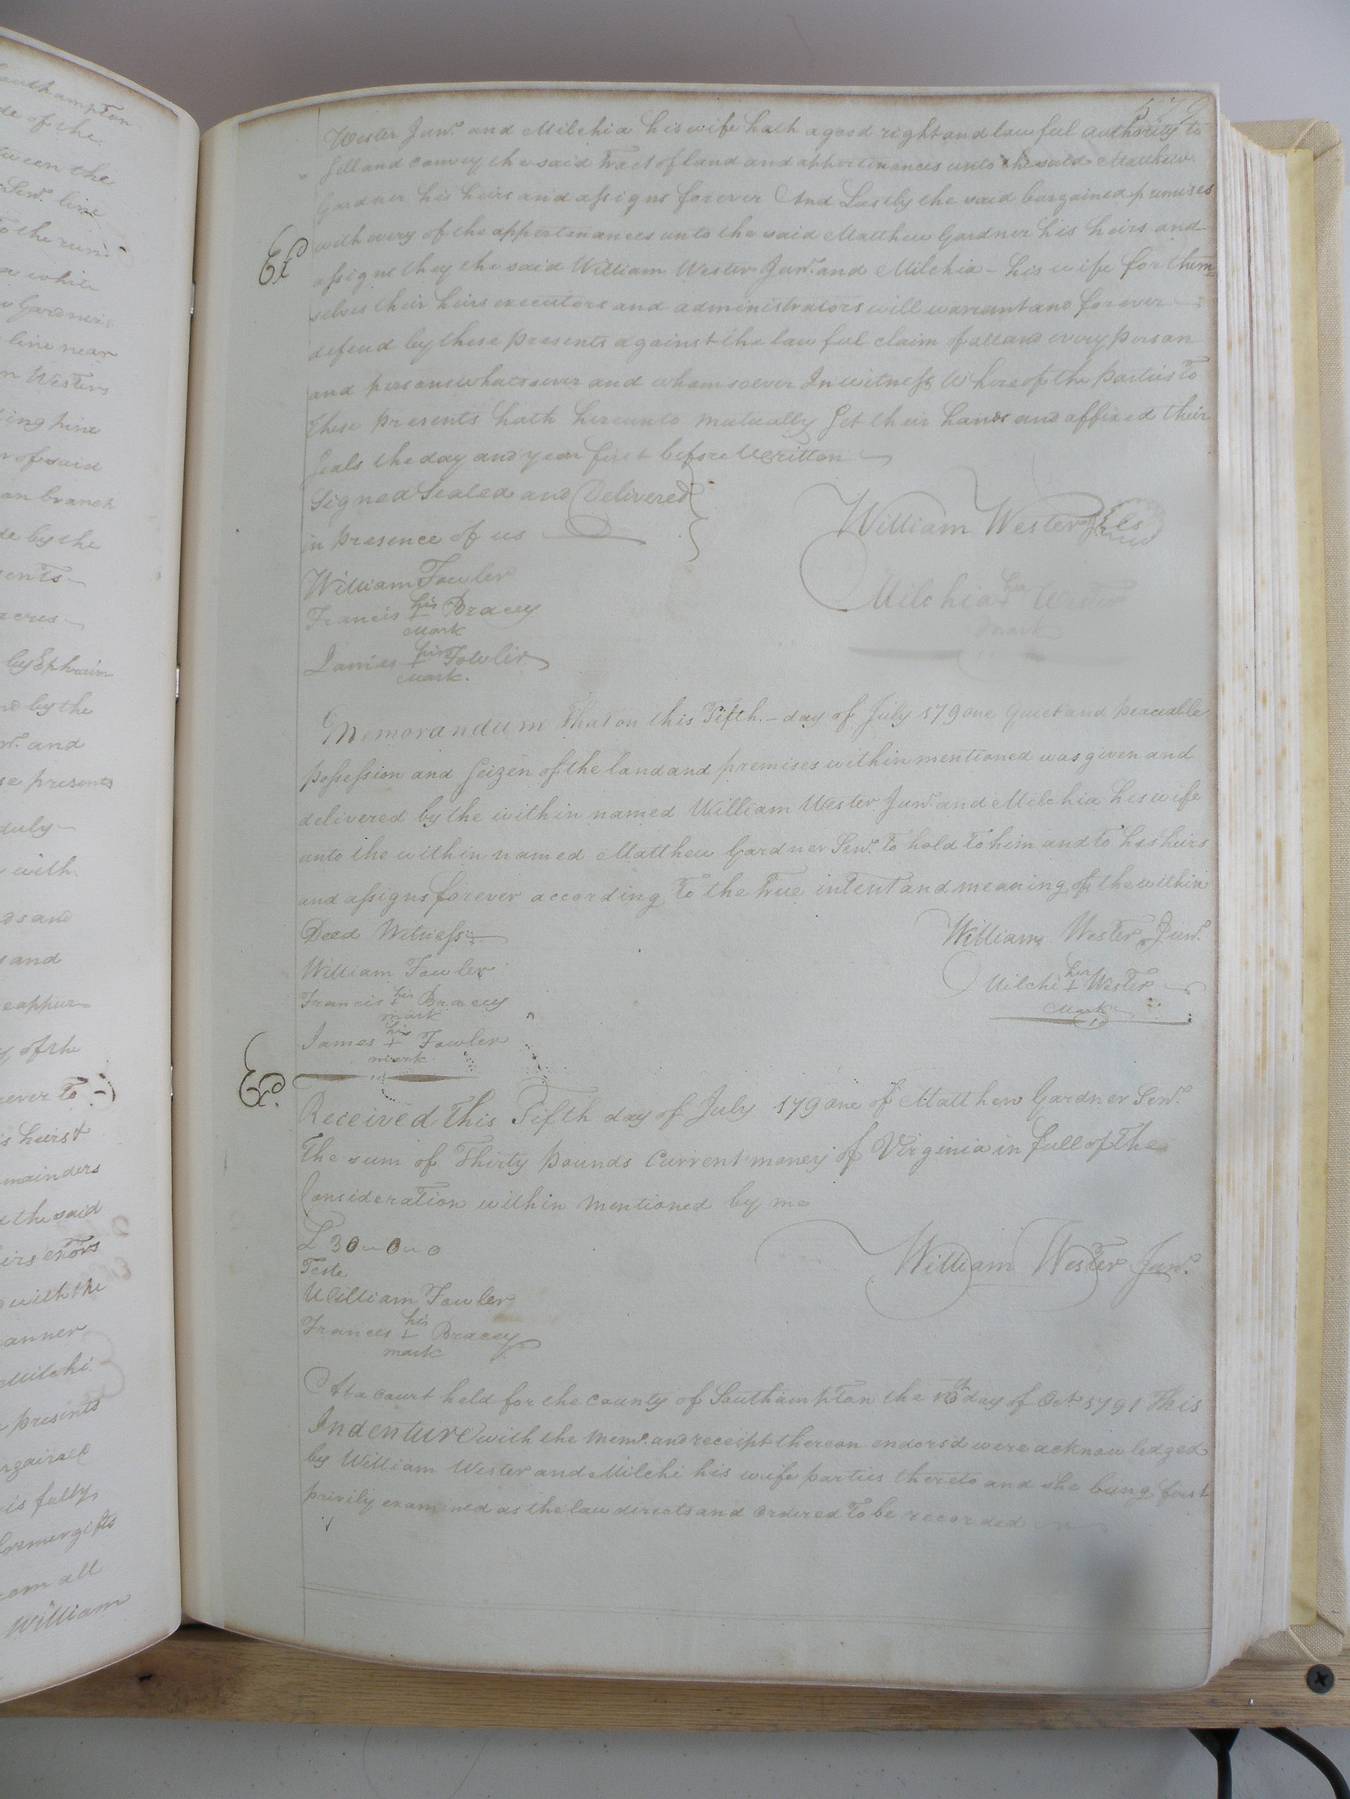 Southampton
de of the
tween the
Senr. line
To the run
a white
w Gardners
line near
m Westers
ing pine
r of said
an branch
de by the
sents
acres
by Ephraim
and by the
nr. and
se presents
duly
with
ds and
and
e appur
y of the
ever To
is heirs &
mainders
d the said
irs exors
with the
anner
Milchi
presents
argained
is fully
former gifts
om all
William
579
Wester Junr. and Milchia his wife hath a good right and lawful authority to
Sell and convey the said Tract of land and appertinances unto the said Matthew
Gardner his heirs and assigns forever And Lastly the said bargained premises
with every of the appertenances unto the said Matthew Gardner his heirs and
Ex
assigns they the said William Wester Junr. and Milchia - his wife for them
selves their heirs executors and administrators will warrant and forever
defend by these presents against the lawful claim of all and every person
and persons whatsoever and whomsoever In witness Whereof the parties To
these presents hath hereunto mutually Set their hands and affixed their
Seals the day and year first before Written
Signed Sealed and Delivered
in presence of us
William Wester
William Fowler
Milchia her Wester
mark
Francis his + Bracey
mark
James his + Fowler
mark.
Memorandum That on this Fifth - day of July 179one Quiet and peaceable
possession and Seizen of the land and premises within mentioned was given and
delivered by the within named William Wester Junr. and Milchia his wife
unto the within named Matthew Gardner Senr. To hold To him and to his heirs
and assigns forever according To the True intent and meaning of the within
Deed Witness
William Wester Junr.
William Fowler
Milchi her + Wester
mark
Francis his + Bracey
mark
James his + Fowler
mark
Ex.
Received This Fifth day of July 179one of Matthew Gardner Senr.
The sum of Thirty pounds Current money of Virginia in full of The
Consideration within mentioned by me
£ 30 - 0 - 0
William Wester Junr.
Teste
William Fowler
Frances his + Bracey
mark
At a court held for the County of Southampton the 13th day of Oct 1791 This
Indenture with the memo. and receipt thereon endorsd were acknowledged
by William Wester and Milchi his wife parties thereto and she being first
privily examined as the law directs and Ordered To be recorded